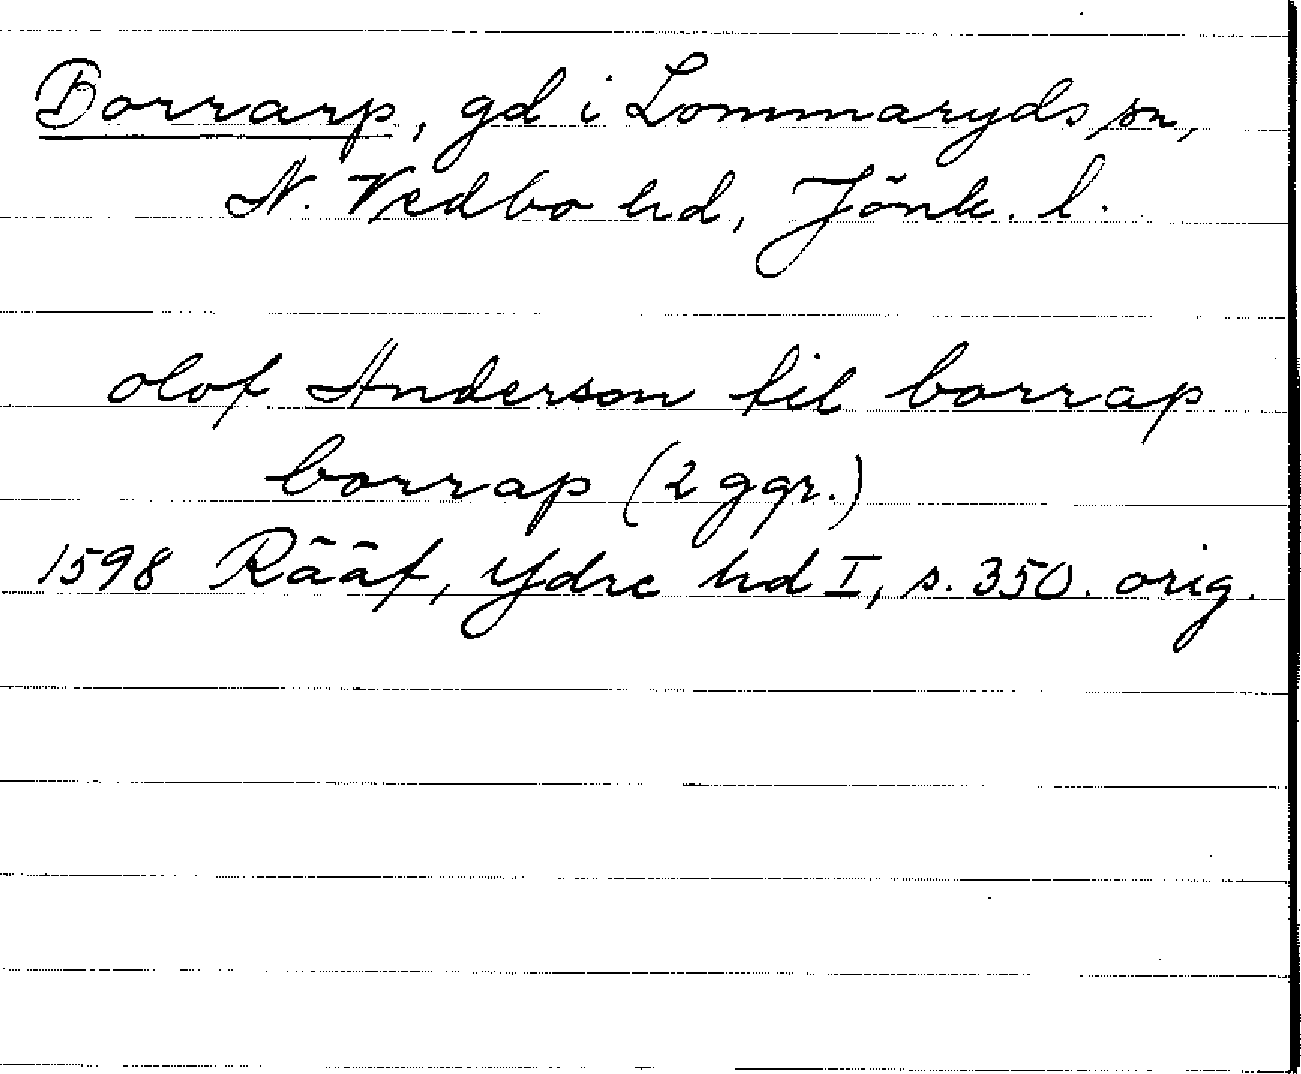 Borrarp, gd i Lommaryds sn,
N. Vedbo hd, Jönk. l.
olof Anderson til borrap
borrap (2 ggr.)
1598 Rääf, Ydre hd I, s. 350. orig.